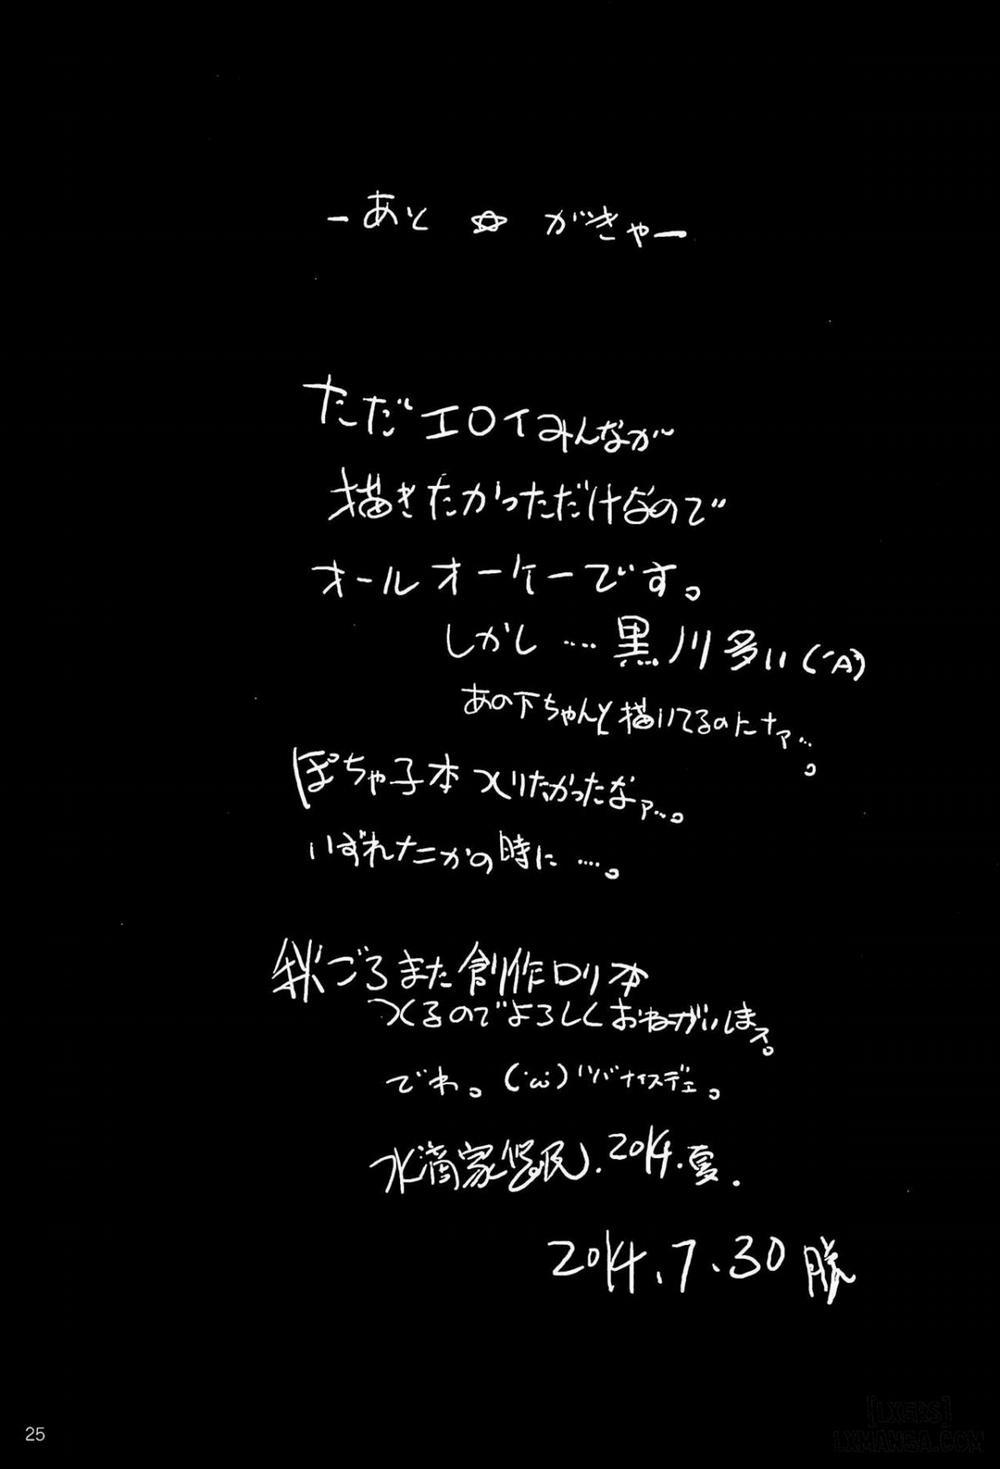 ーあと☆がきゃー
ただエロイみんなが
描きたかっただけなので
オールオーケーです。
しかし‥‥黒川多い(´A`)
あの下ちゃんと描いてるのにナァ…。
ぽちゃ子本つくりたかったなァ…。
いずれナニかの時に‥‥。
秋ごろまた創作ロリ本
つくるのでよろしくおねがいします。
でわ。(´ω`)ツバナイスデェ。
2014.夏.
2014.7.30
25
[LXERS]
LXMANGA.COM